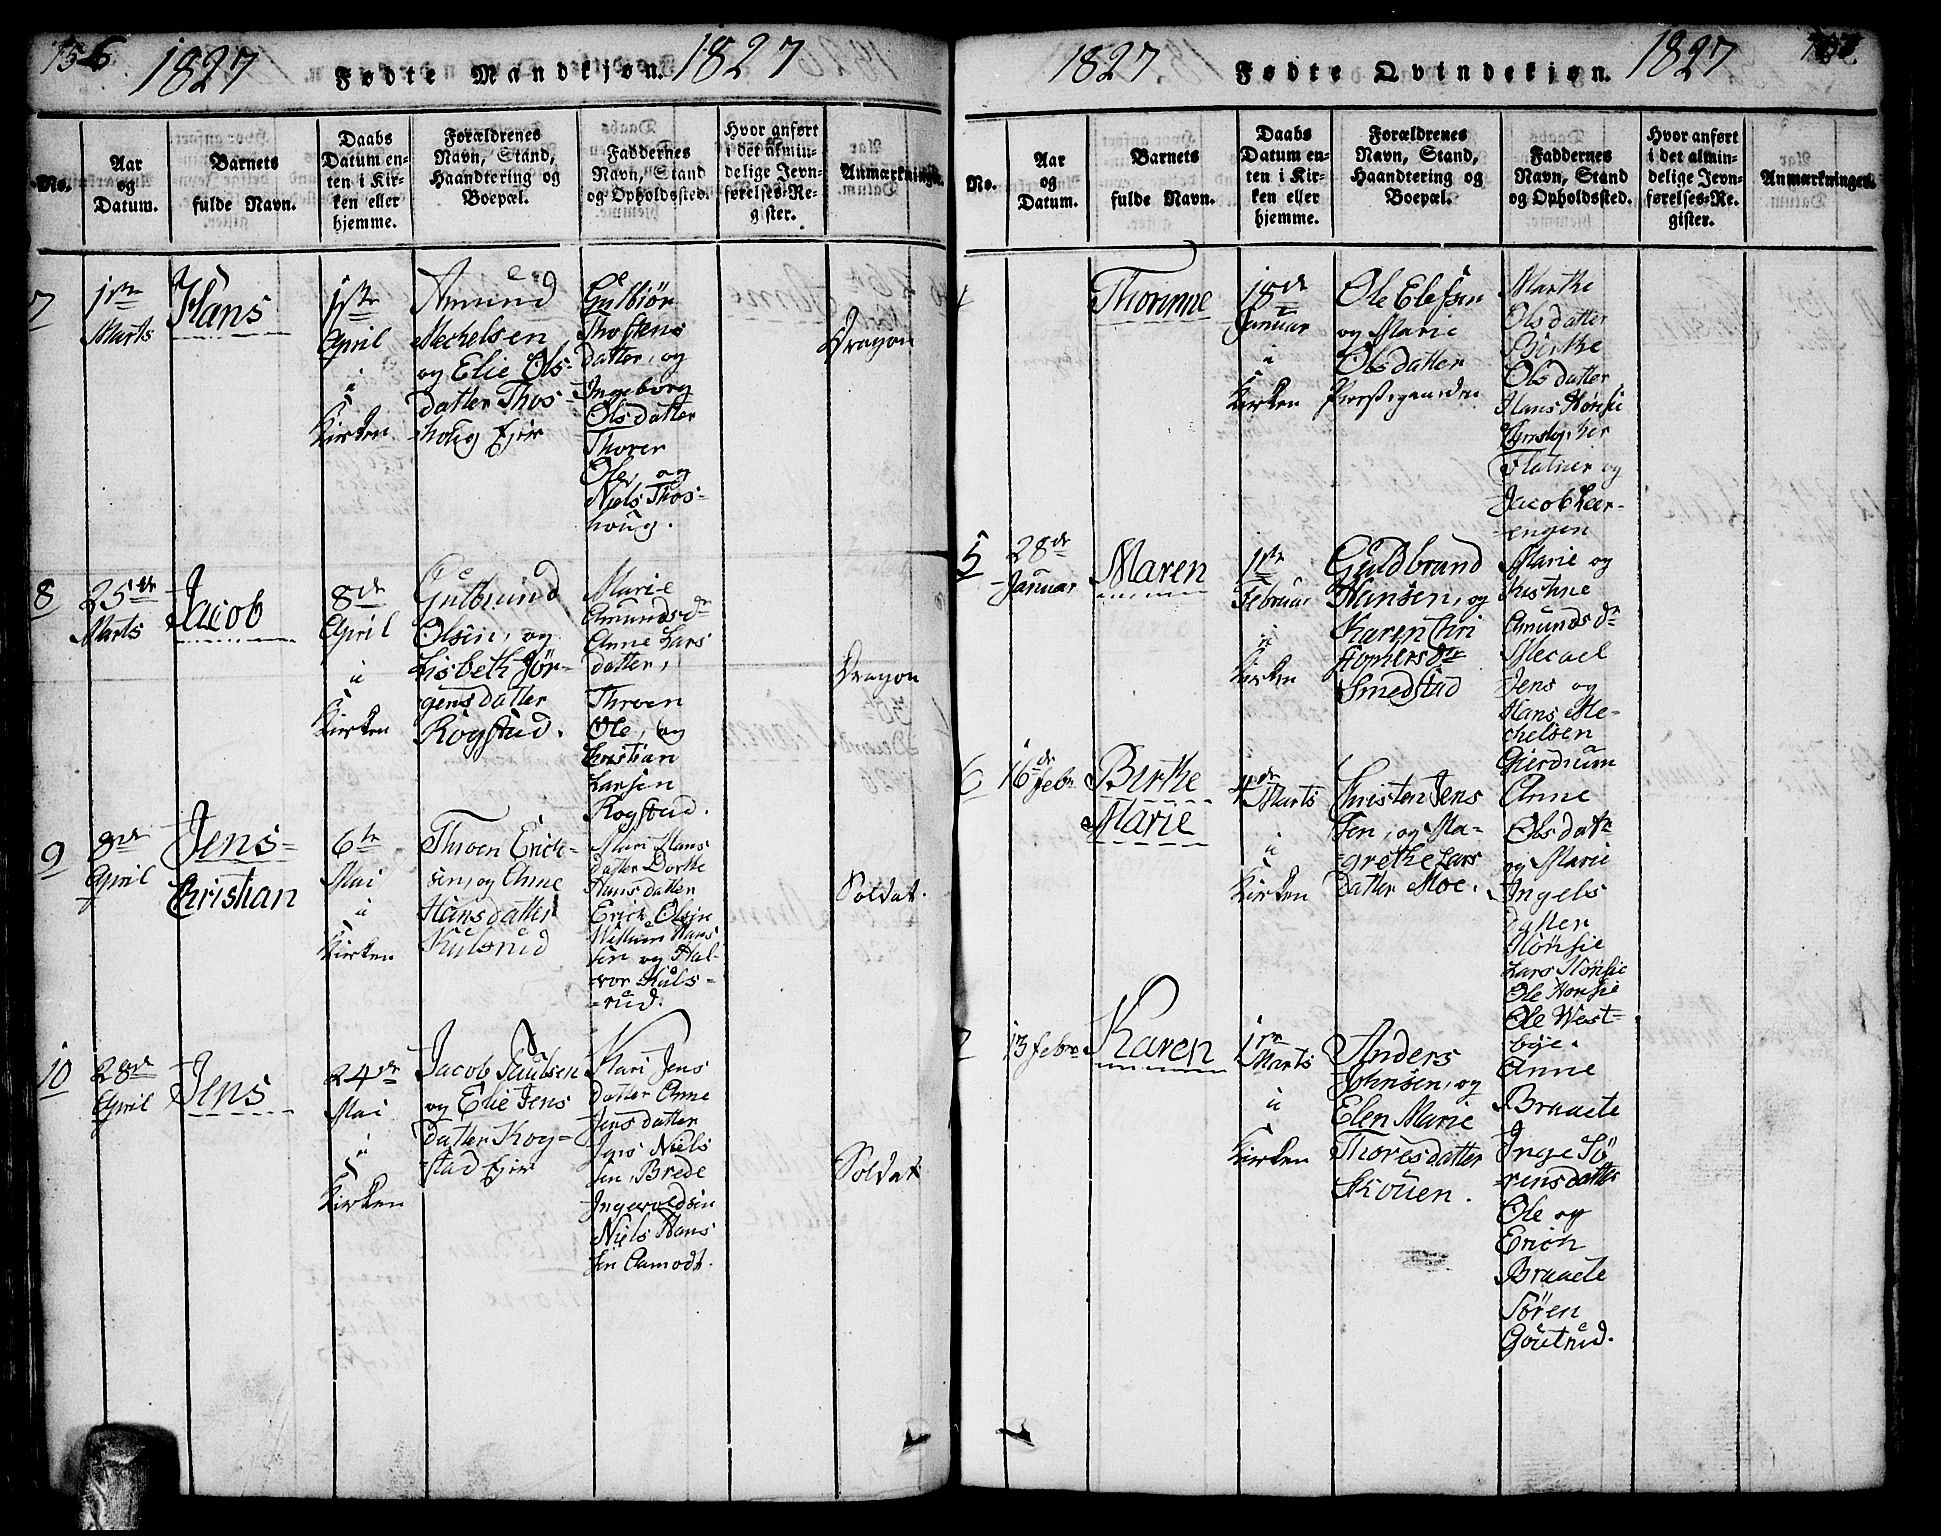 156
1827
Fødte Mandkjøn.
1827
No.
Aar
og
Datum.
Barnets
fulde Navn.
Daabs
Datum en-
ten i Kir-
ken eller
hjemme.
Forældrenes
Navn, Stand,
Haandtering og
Boepæl.
Faddernes
Navn, Stand
og Opholdssted.
Hvor anført
i det almin-
delige Jevn-
førelses-Re-
gister.
Anmærkninger.
7
1ste
Marts
Hans
1ste
April
i
Kirken
Amund
Mechelsen
og Elie Ols-
datter Thos-
houg Ejer
Gulbiør
Thostens
datter, og
Ingeborg
Olsdatter
Thorer
Ole, og
Niels Thos-
houg.
Dragon
8
25de
Marts
Jacob
8de
April
i
Kirken
Gulbrand
Olsen, og
Lisbeth Jør-
gensdatter
Rogstad.
Marie
Amundsdr
Anne Lars
datter,
Throen
Ole, og
Christian
Larsen
Rogstad.
Dragon
9
8de
April
Jens-
Christian
6te
Mai
i
Kirken
Throen Erick-
sen, og Anne
Hansdatter
Kulsrud
Mari Hans
datter Dorthe
Hansdatter
Erick Olsen
Willum Hans
sen og Hal-
vor Kuls-
-rud.
Soldat.
10
28de
April
Jens
24de
Mai
i
Kirken
Jacob Paulsen
og Elie Jens
datter Rog-
stad Ejer
Kari Jens
datter Anne
Jensdatter
Jens Niels
sen, Brede
Ingevoldsen
Niels Hans
sen Aamodt.
Soldat
1827
Fødte Qvindekjøn.
1827
157.
No.
Aar
og
Datum.
Barnets
fulde Navn.
Daabs
Datum en-
ten i Kir-
ken eller
hjemme.
Forældrenes
Navn, Stand,
Haandtering og
Boepæl.
Faddernes
Navn, Stand
og Opholdssted.
Hvor anført
i det almin-
delige Jevn-
førelses-Re-
gister.
Anmærkninger.
Thorinne
18de
Januar
i
Kirken
Ole Elefsen
og Marie
Olsdatter
Præstegaarden
Marthe
Olsdatter
Birthe
Olsdatter
Hans Hønsie
Flatner og
Jacob Leer-
-engen
5
28de
Januar
Maren
1ste
Februar
i
Kirken
Guldbrand
Hansen, og
Karen Chri
stophersdtr
Smedstad
Marie og
Kistine
Amundsdr
Mecael
Jens og
Hans Me-
chelsen
Gierdrum
6
16de
Febr
Birthe
Marie
4de
Marts
i
Kirken
Christen Jens
sen, og Ma-
grethe Lars
datter Moe.
Anne
Olsdatr
og Marie
Ingels
datter
Hønsie
Lars Hønsie
Ole Hønsie
Ole West-
bye.
7
13 Febr
Karen
1ste
Marts
i
Kirken
Anders
Johnsen, og
Elen Marie
Thoresdatter
Skouen.
Anne
Braaete
Inge Sø
rensdatter
Ole og
Erich
Braaete
Søren
Goutrud.